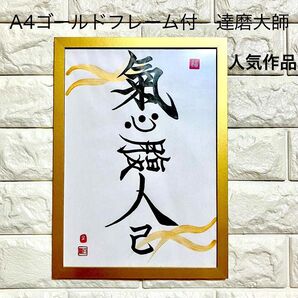 A4ゴールドフレーム付　達磨大師
人気作品
氣心腹人己